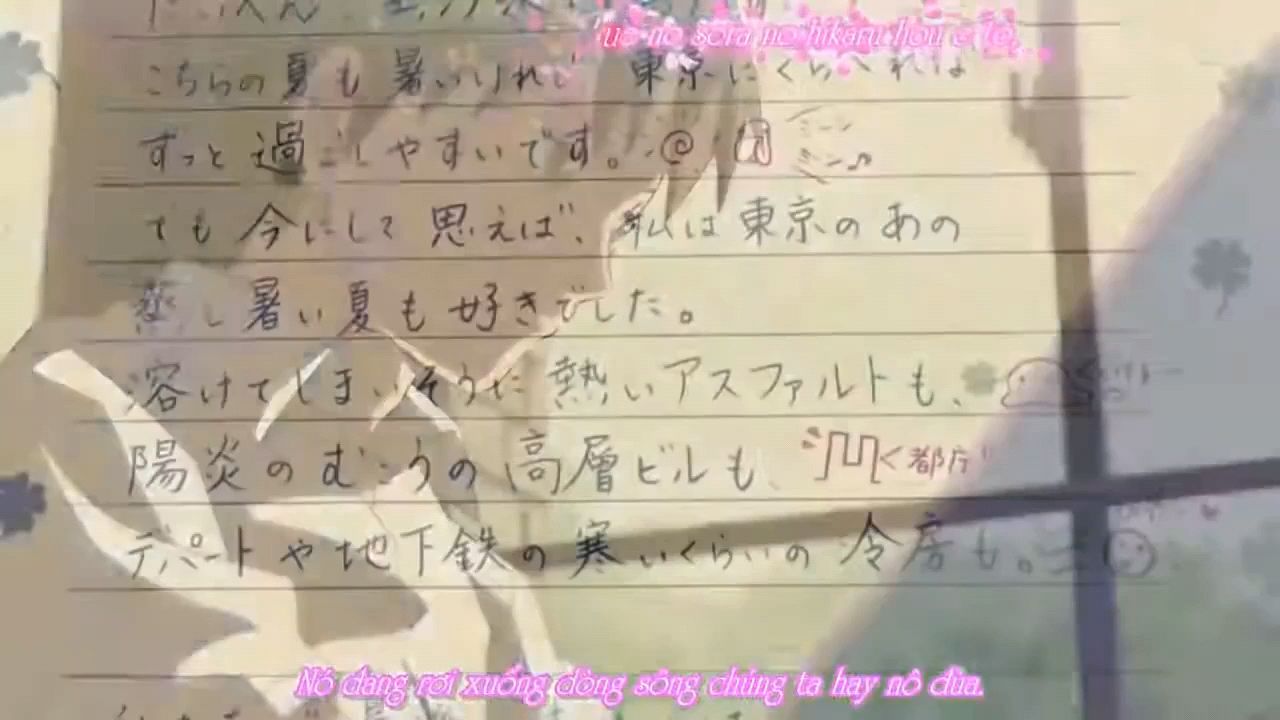 no sora no hikaru hou e to
こちらの夏も暑いけれど 東京にくらべれば
ずっと過ごしやすいです。
ミーン
ミーン♪
でも今にして思えば、私は東京のあの
蒸し暑い夏も好きでした。
溶けてしまいそうに熱いアスファルトも、
陽炎のむこうの高層ビルも、 都庁
デパートや地下鉄の寒いくらいの冷房も。
Nó đang rơi xuống dòng sông chúng ta hay nô đùa.